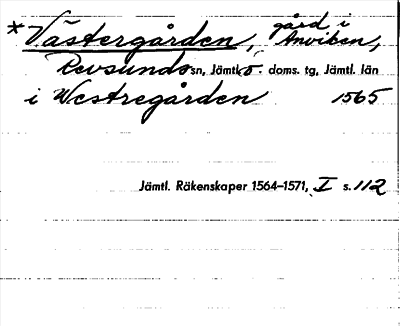 *Västergården, gård i Anviken,
Revsunds sn, Jämtl. ö. doms. tg, Jämtl. län
i Westregården 1565
Jämtl. Räkenskaper 1564–1571, I s. 112